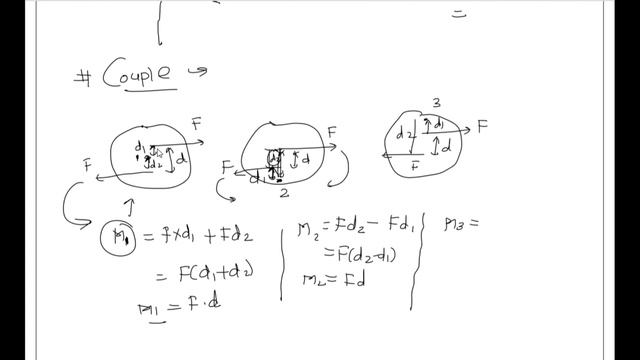 =
# Couple →
F d₁ d₂ d F
F d₂ d d₁ F 2
3 d₂ d₁ d F F
M₁ = F×d₁ + Fd₂
= F(d₁+d₂)
M₁ = F·d
M₂ = Fd₂ − Fd₁
= F(d₂-d₁)
M₂ = Fd
M3 =